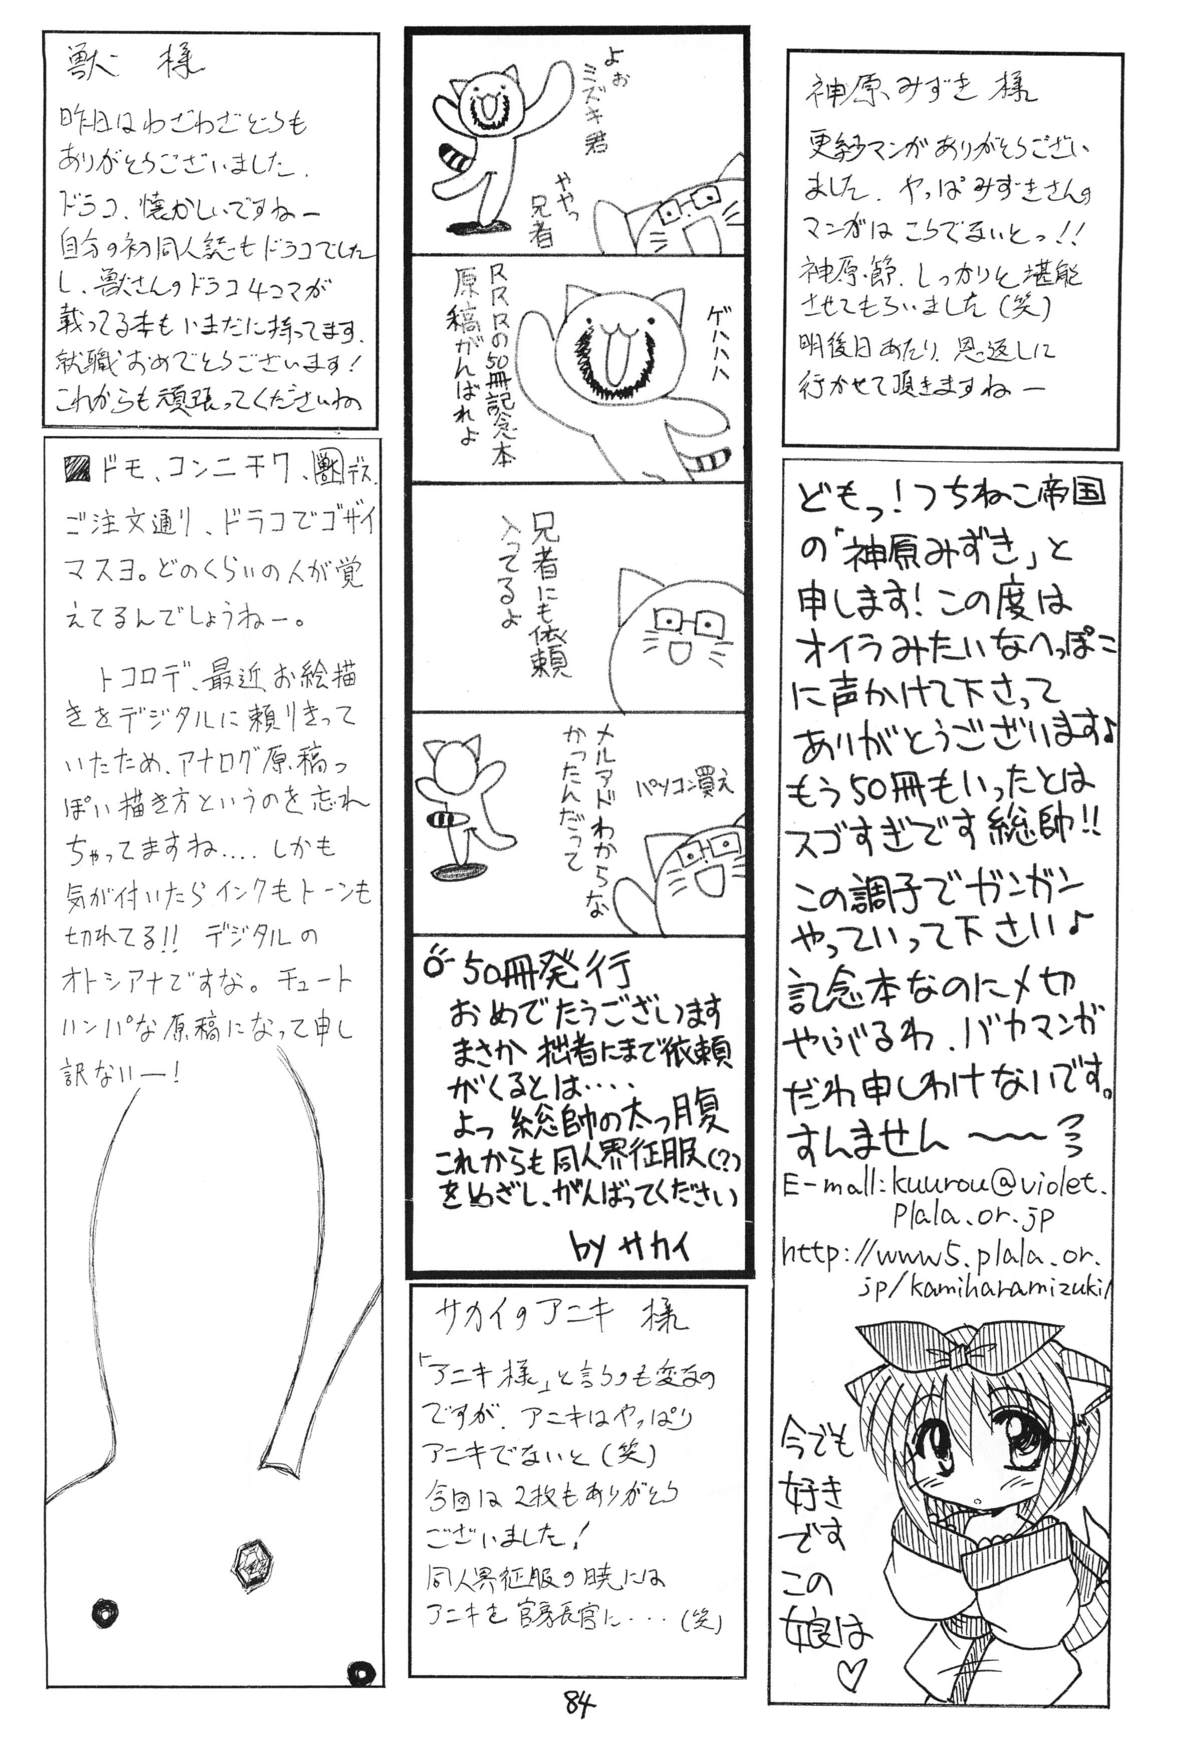 獣 様
昨日はわざわざどうも
ありがとうございました.
ドラコ、懐かしいですねー
自分の初同人誌もドラコでした
し、獣さんのドラコ4コマが
載ってる本もいまだに持ってます.
就職おめでとうございます!
これからも頑張ってくださいね
■ドモ、コンニチワ、獣デス.
ご注文通り、ドラコでゴザイ
マスヨ。どのくらいの人が覚
えてるんでしょうねー。
トコロデ、最近お絵描
きをデジタルに頼りきって
いたため、アナログ原稿っ
ぽい描き方というのを忘れ
ちゃってますね.... しかも
気が付いたらインクもトーンも
切れてる!! デジタルの
オトシアナですな。チュート
ハンパな原稿になって申し
訳ないー!
よぉ
ミズキ君
ややっ
兄者
ゲハハハ
RRRの50冊記念本
原稿がんばれよ
兄者にも依頼
入ってるよ
メルアドわからな
かったんだって
パソコン買え
50冊発行
おめでたうございます
まさか拙者にまで依頼
がくるとは・・・・
よっ 総帥の太っ腹
これからも同人界征服(?)
をめざし、がんばってください
by サカイ
サカイのアニキ 様
「アニキ様」と言うのも変なの
ですが、アニキはやっぱり
アニキでないと(笑)
今回は2枚もありがとう
ございました!
同人界征服の暁には
アニキを官房長官に・・・(笑)
神原みずき 様
更紗マンがありがとうござい
ました. やっぱみずきさんの
マンガはこうでないとっ!!
神原節、しっかりと堪能
させてもらいました(笑)
明後日あたり、恩返しに
行かせて頂きますねー
どもっ!つちねこ帝国
の「神原みずき」と
申します!この度は
オイラみたいなへっぽこ
に声かけて下さって
ありがとうございます♪
もう50冊もいったとは
スゴすぎです総帥!!
この調子でガンガン
やっていって下さい♪
記念本なのに〆切
やぶるわ、バカマンガ
だわ申しわけないです。
すんません〜〜
E-mail:kuurou@violet.
plala.or.jp
http://www5.plala.or.
jp/kamiharamizuki/
今でも
好き
です
この
娘は
♡
84